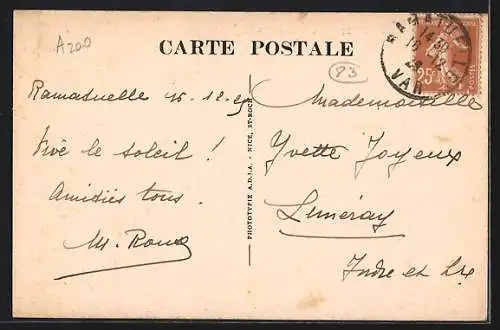 A200
CARTE POSTALE
83
RAMATUELLE
14 30
VAR
25
POSTES
Ramatuelle 15.12.29
Vive le soleil !
Amitiés tous.
M. Roux
PHOTOTYPIE A.D.I.A. - NICE, ST-ROCH
Mademoiselle
Yvette Joyeux
Limeray
Indre et Lre